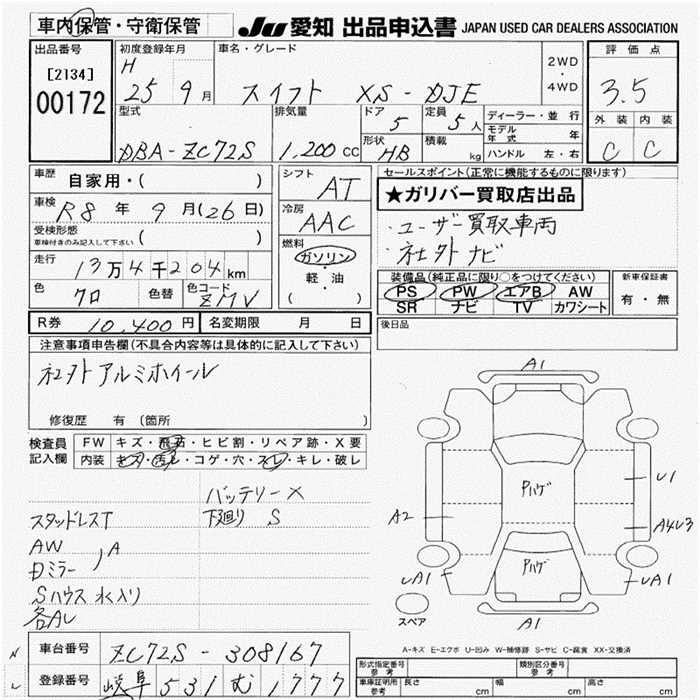 車内保管・守衛保管
JU 愛知 出品申込書 JAPAN USED CAR DEALERS ASSOCIATION
出品番号
[2134]
00172
初度登録年月
H
25 9月
車名・グレード
スイフト XS-DJE
2WD
・
4WD
評価点
3.5
外装 内装
C C
型式
DBA-ZC72S
排気量
1,200cc
ドア
5
定員
5人
形状
HB
積載
kg
ディーラー・並行
モデル年式 年
ハンドル 左・右
車歴
自家用・( )
車検
R8年 9月(26日)
受検形態
車検付きのみ記入して下さい ( )
走行
13万4千204km
色
クロ
色替
色コード
ZMV
シフト
AT
冷房
AAC
燃料
ガソリン
・
軽・油
( )
セールスポイント(正常に機能するものに限ります)
★ガリバー買取店出品
・ユーザー買取車両
・社外ナビ
装備品(純正品に限り○をつけてください)
PS PW エアB AW
SR ナビ TV カワシート
新車保証書
有・無
R券 10,400円
名変期限 月 日
後日品
注意事項申告欄(不具合内容等は具体的に記入して下さい)
社外アルミホイール
修復歴 有(箇所
検査員
記入欄
FW キズ・飛石・ヒビ割・リペア跡・X要
内装 キズ・汚レ・コゲ・穴・スレ・キレ・破レ
バッテリーX
スタッドレスT 下廻り S
AW
Dミラー ) A
Sハウス 水入り
各AU
A1
Pハゲ
U1
A2
A4U3
Pハゲ
UA1
UA1
A1
スペア
A-キズ E-エクボ U-凹み W-補修跡 S-サビ C-腐食 XX-交換済
車台番号 ZC72S-308167
登録番号 岐阜 531 む 1777
形式指定番号
参考
類別区分番号
参考
車庫証明用
参考
長さ cm
幅 cm
高さ cm